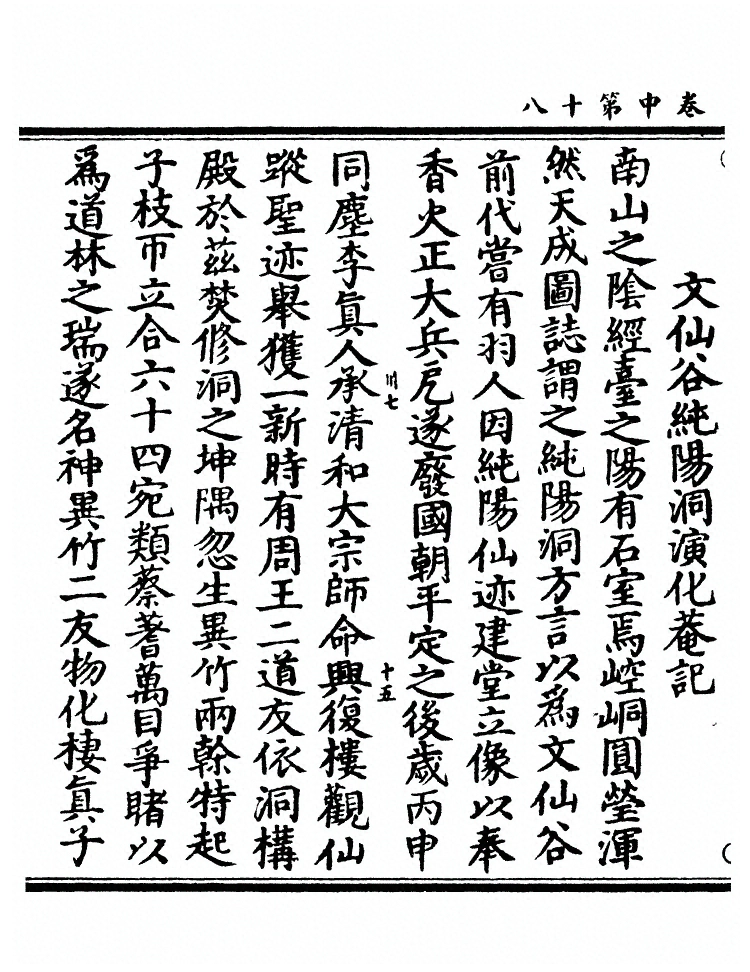 卷中第十八
文仙谷純陽洞演化菴記
南山之陰經臺之陽有石室焉崆峒圓瑩渾
然天成圖誌謂之純陽洞方言以爲文仙谷
前代嘗有羽人因純陽仙迹建堂立像以奉
香火正大兵戹遂廢國朝平定之後歲丙申
川七
十五
同塵李眞人承清和大宗師命興復樓觀仙
蹤聖迹舉獲一新時有周王二道友依洞構
殿於茲焚修洞之坤隅忽生異竹兩榦特起
子枝帀立合六十四宛類蔡蓍萬目爭睹以
爲道林之瑞遂名神異竹二友物化棲眞子